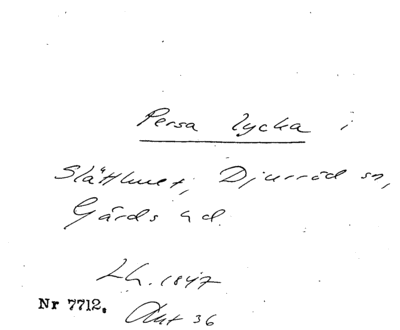 Persa lycka i
Slätthult, Djurröd sn,
Gärds hd.
Lh. 1847
Nr 7712. Akt 36